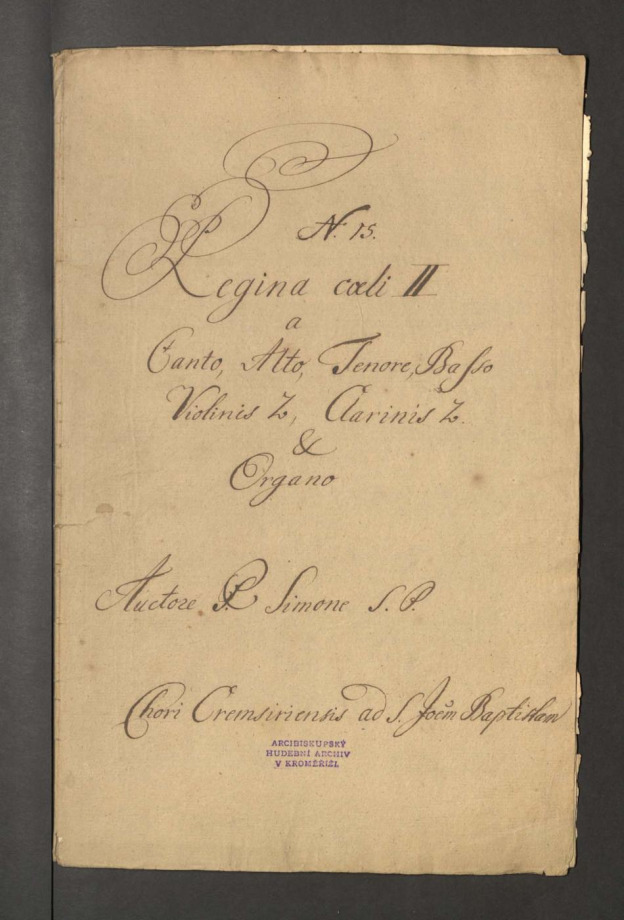 N. 15.
Regina cœli II
a
Canto, Alto, Tenore, Basso
Violinis 2, Clarinis 2.
&
Organo
Auctore P. Simone S. P.
Chori Cremsiriensis ad S. Joēm Baptistam
ARCIBISKUPSKÝ
HUDEBNÍ ARCHIV
V KROMĚŘÍŽI.